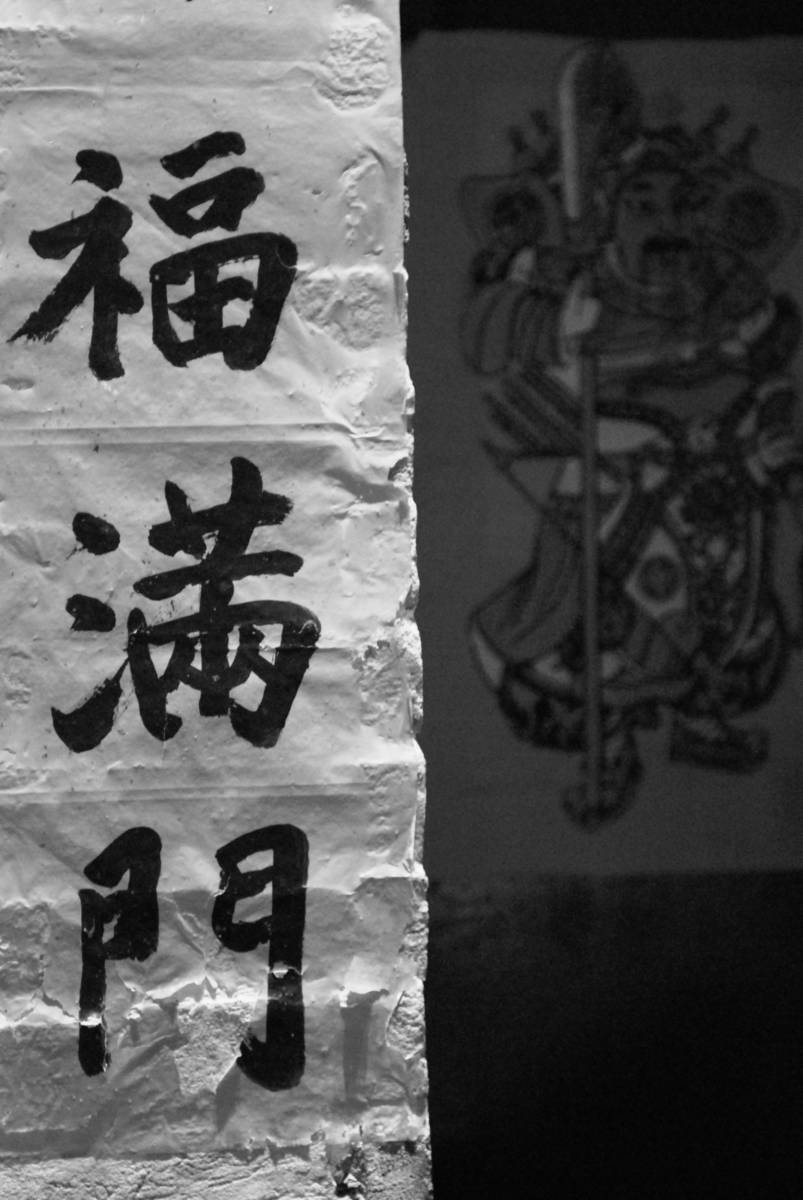 福滿門